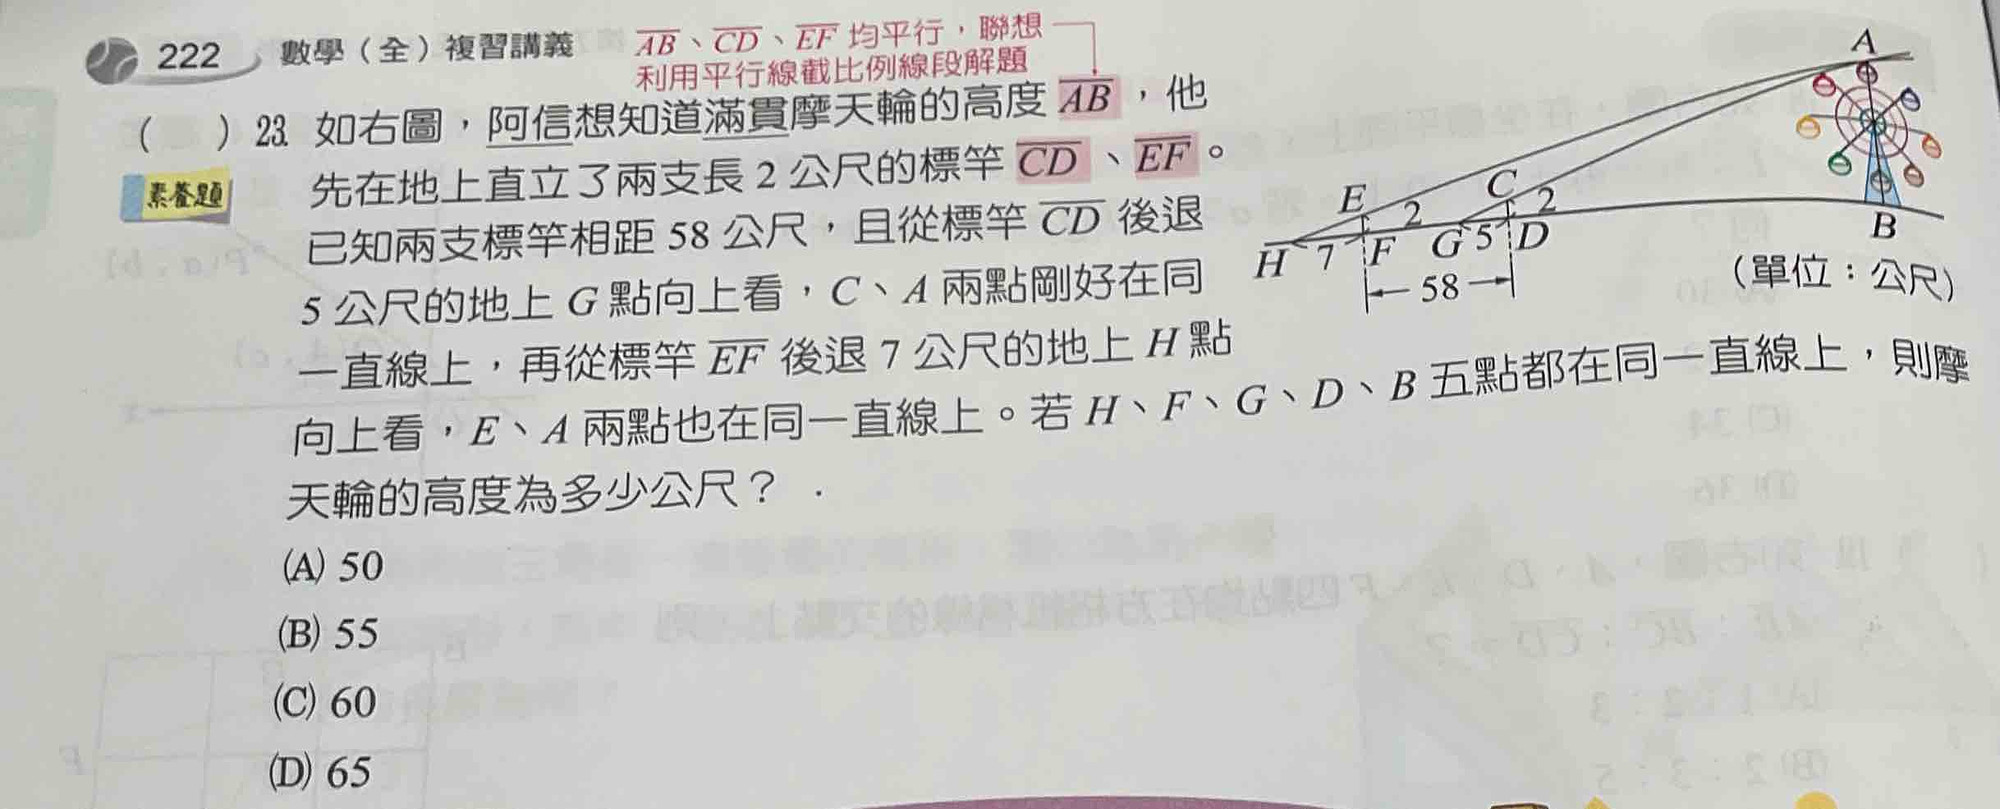 222 數學（全）複習講義
AB、CD、EF 均平行，聯想
利用平行線截比例線段解題
（　）23. 如右圖，阿信想知道滿貫摩天輪的高度 AB，他
素養題
先在地上直立了兩支長 2 公尺的標竿 CD、EF。
已知兩支標竿相距 58 公尺，且從標竿 CD 後退
5 公尺的地上 G 點向上看，C、A 兩點剛好在同
一直線上，再從標竿 EF 後退 7 公尺的地上 H 點
向上看，E、A 兩點也在同一直線上。若 H、F、G、D、B 五點都在同一直線上，則摩
天輪的高度為多少公尺？
(A) 50
(B) 55
(C) 60
(D) 65
A
E 2 C 2
H 7 F G 5 D B
58
（單位：公尺）